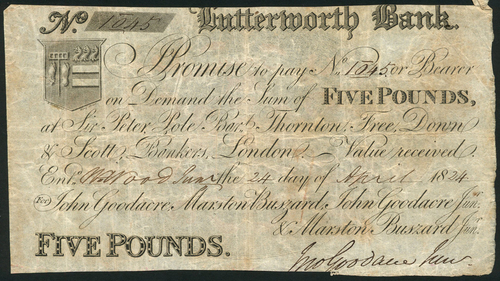 No. 1045 Lutterworth Bank.
I Promise to pay No. 1045 or Bearer
on Demand the Sum of FIVE POUNDS,
at Sir Peter Pole Bart. Thornton, Free, Down
& Scott, Bankers, London, Value received.
Entd. Wood Junr. the 24 day of April 1824
For John Goodacre, Marston Buszard, John Goodacre Junr.
& Marston Buszard Junr.
FIVE POUNDS.
Jno Goodacre Jun